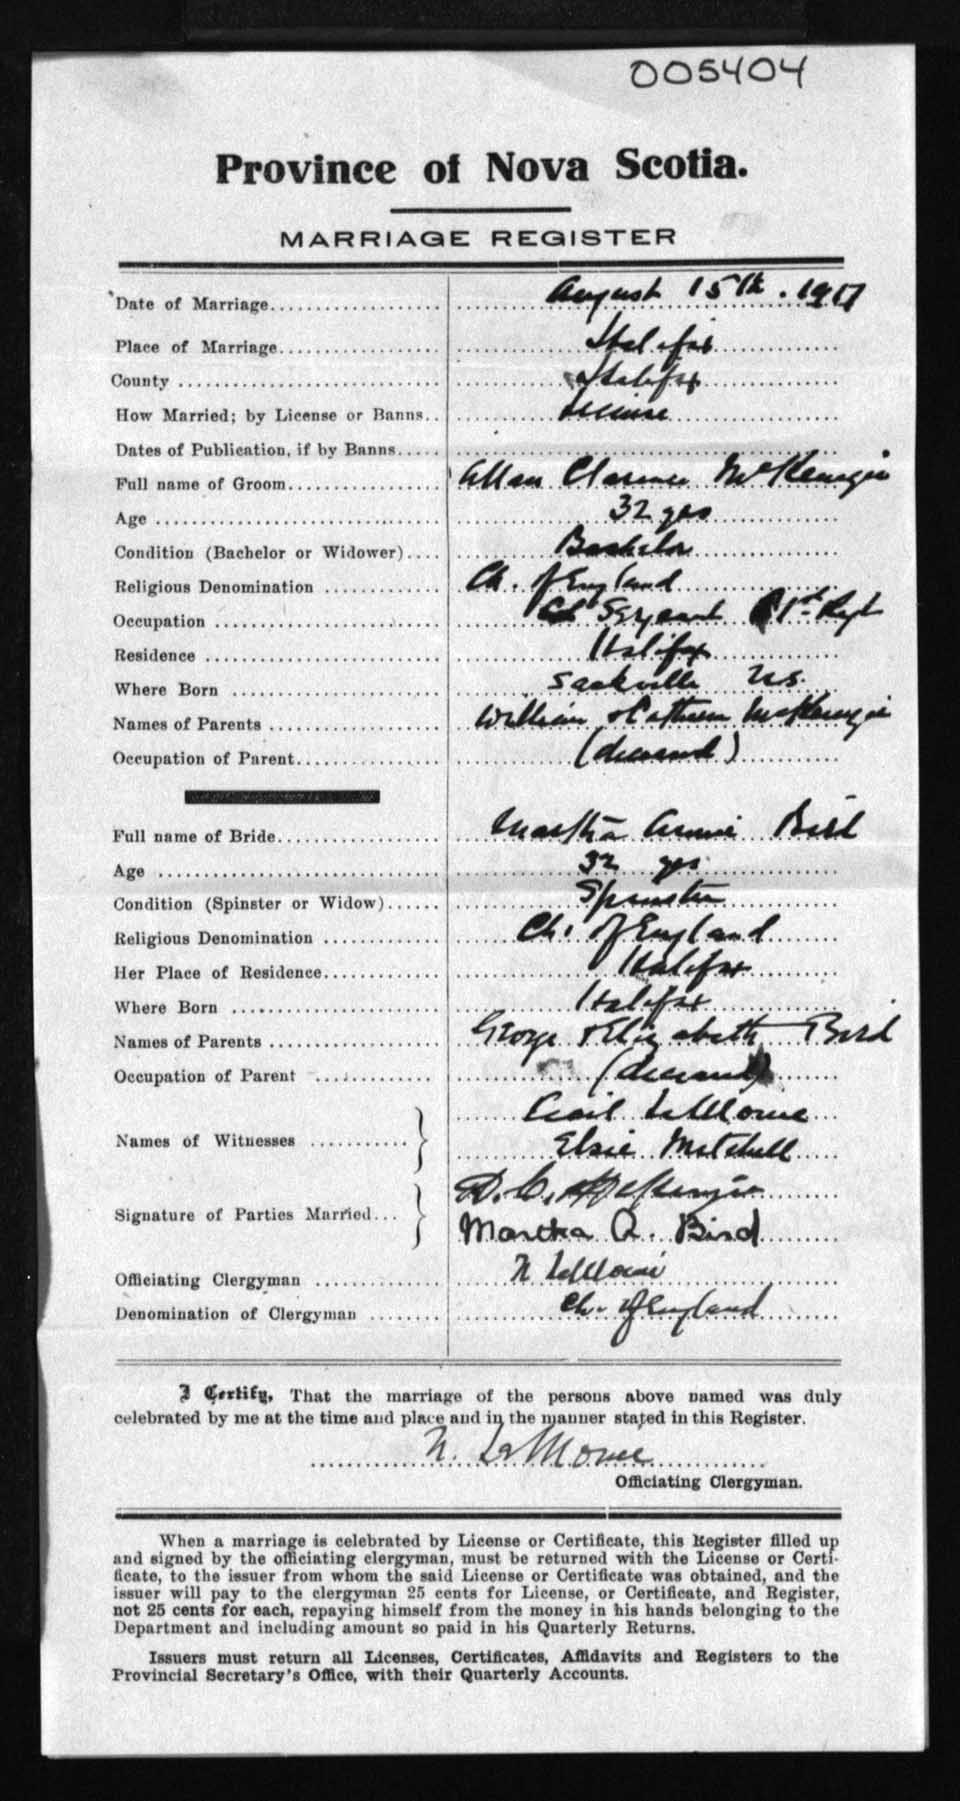 005404
Province of Nova Scotia.
MARRIAGE REGISTER
Date of Marriage August 15th. 1917
Place of Marriage Halifax
County Halifax
How Married; by License or Banns License
Dates of Publication, if by Banns
Full name of Groom Allan Clarence McKenzie
Age 32 yrs
Condition (Bachelor or Widower) Bachelor
Religious Denomination Ch. of England
Occupation Sergeant 1st Regt
Residence Halifax
Where Born Sackville N.S.
Names of Parents William & Cathern McKenzie
Occupation of Parent (deceased)
Full name of Bride Martha Annie Bird
Age 32 yrs
Condition (Spinster or Widow) Spinster
Religious Denomination Ch. of England
Her Place of Residence Halifax
Where Born Halifax
Names of Parents George & Elizabeth Bird
Occupation of Parent (deceased)
Cecil LeMoine
Names of Witnesses
Elsie Mitchell
A. C. McKenzie
Signature of Parties Married
Martha A. Bird
Officiating Clergyman N LeMoine
Denomination of Clergyman Ch. of England
I Certify, That the marriage of the persons above named was duly
celebrated by me at the time and place and in the manner stated in this Register.
N. LeMoine
Officiating Clergyman.
When a marriage is celebrated by License or Certificate, this Register filled up
and signed by the officiating clergyman, must be returned with the License or Certi-
ficate, to the issuer from whom the said License or Certificate was obtained, and the
issuer will pay to the clergyman 25 cents for License, or Certificate, and Register,
not 25 cents for each, repaying himself from the money in his hands belonging to the
Department and including amount so paid in his Quarterly Returns.
Issuers must return all Licenses, Certificates, Affidavits and Registers to the
Provincial Secretary's Office, with their Quarterly Accounts.